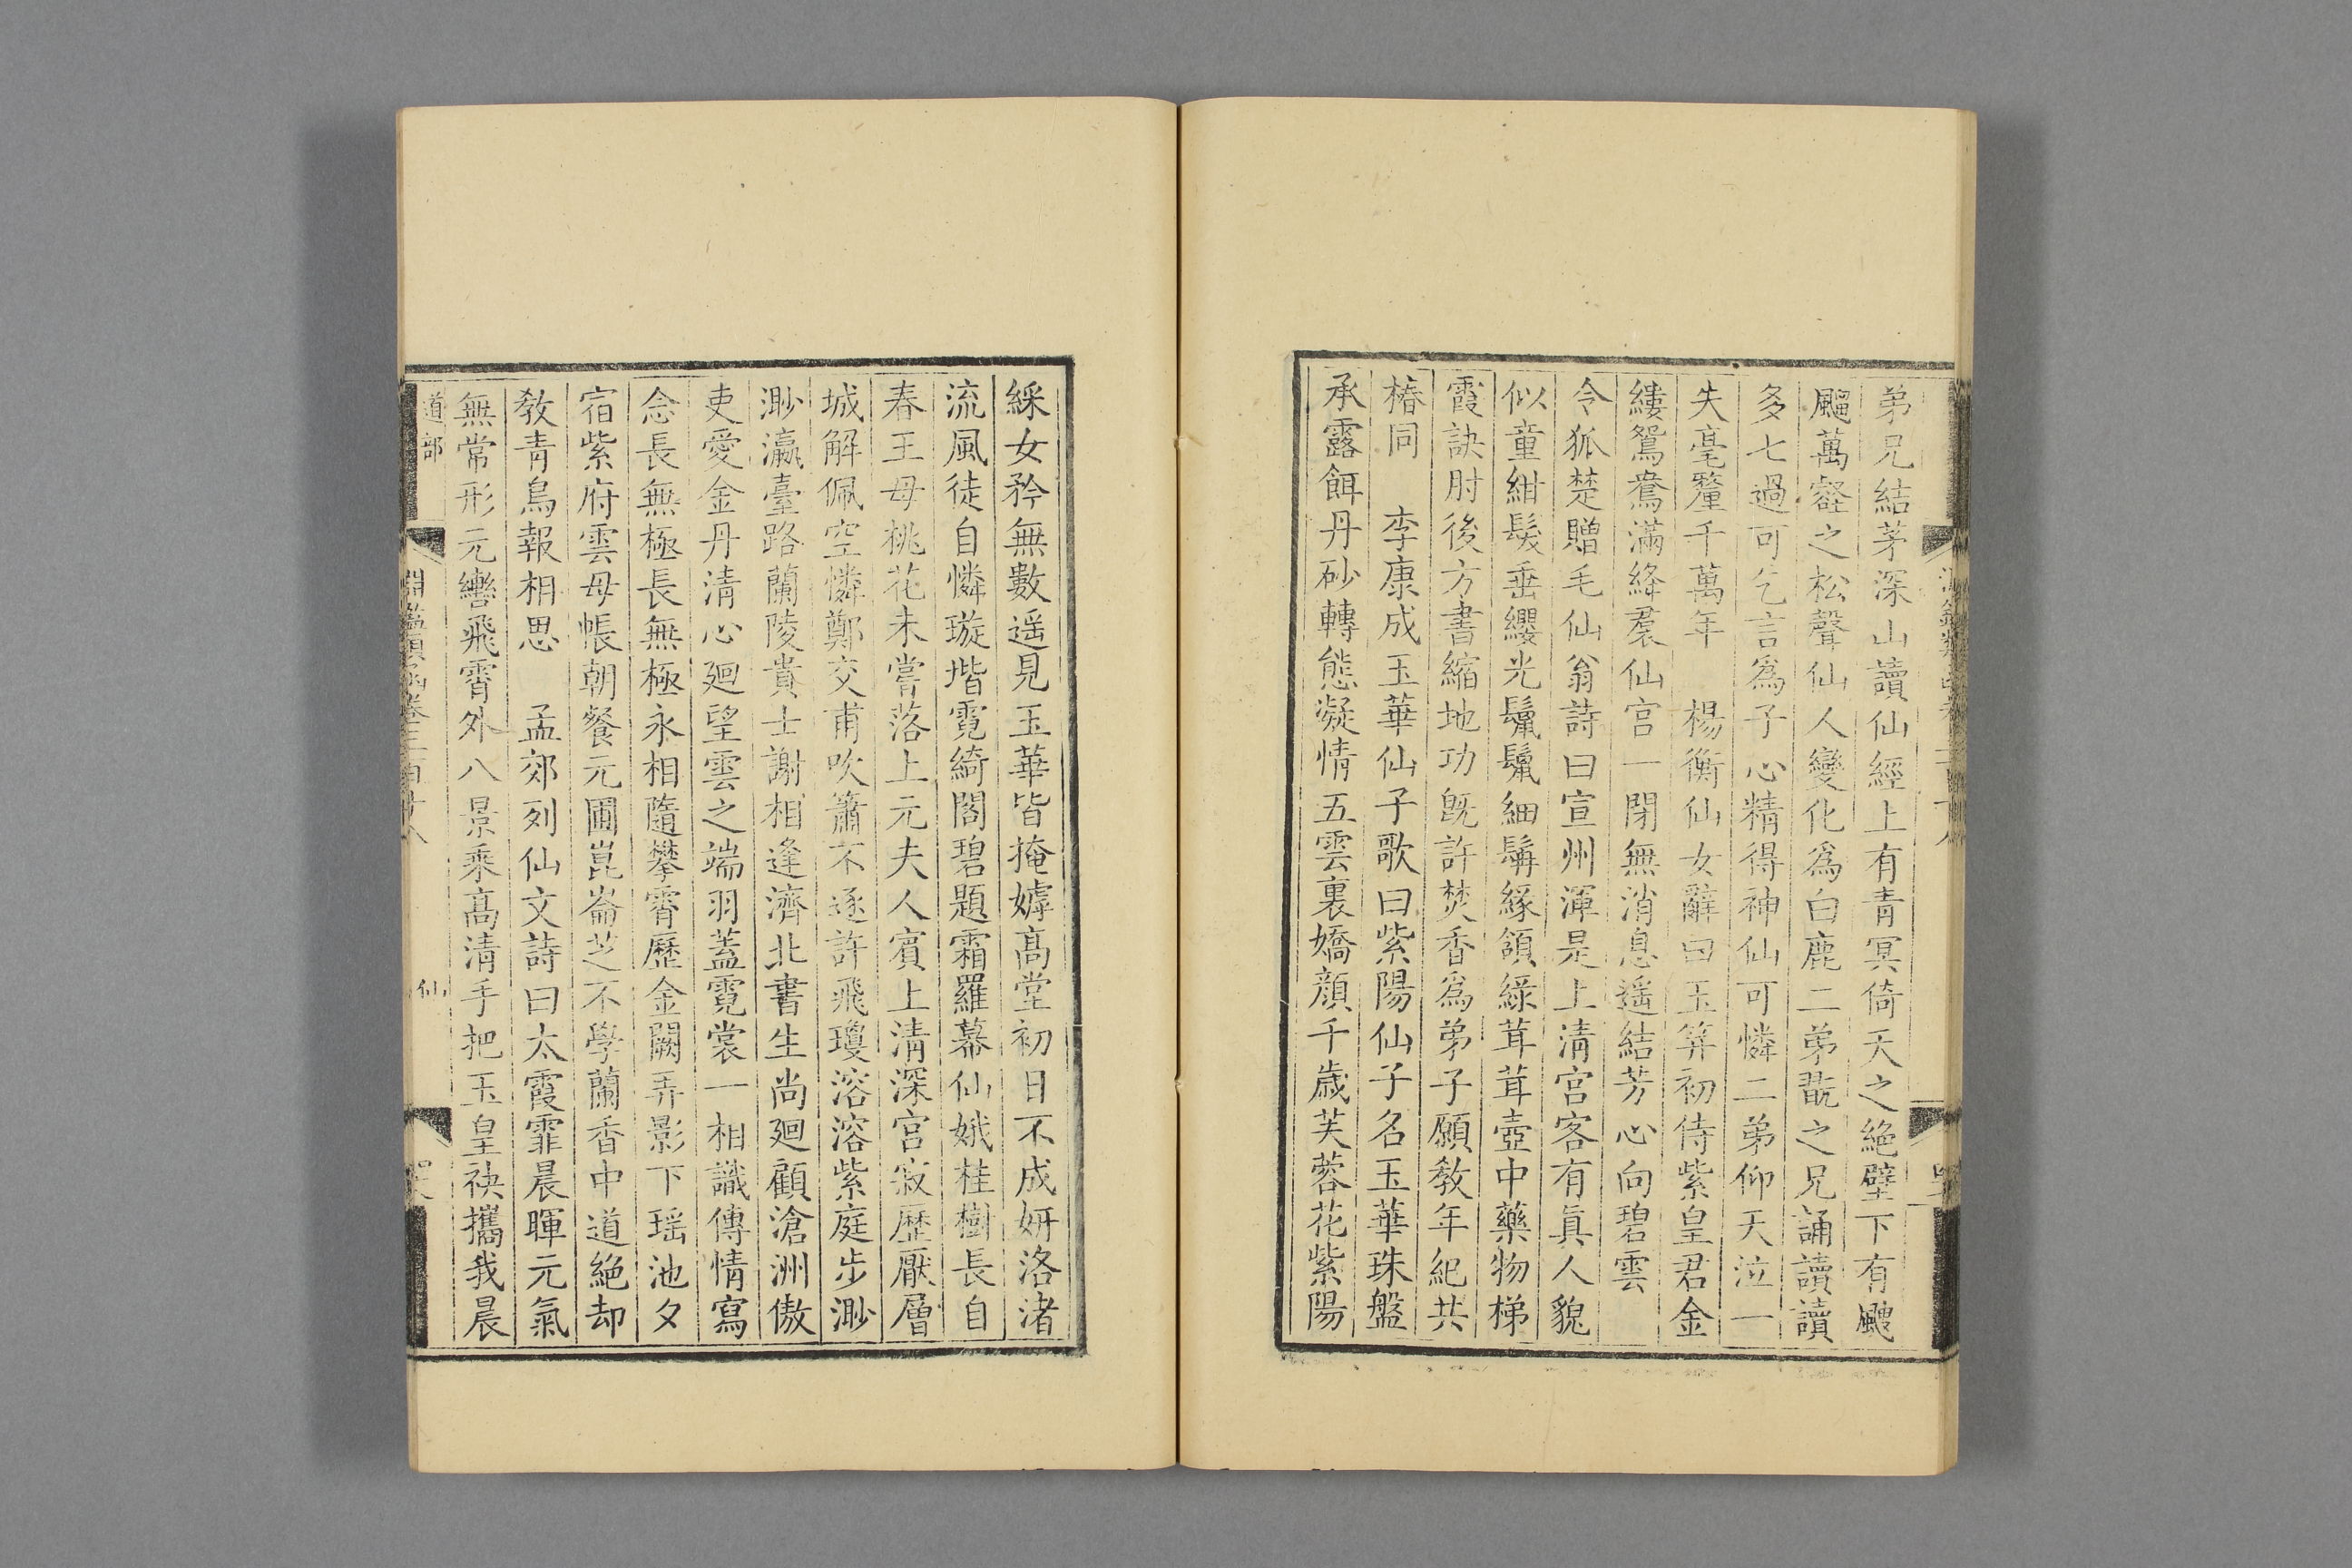 弟兄結茅深山讀仙經上有青冥倚天之絶壁下有颼
飀萬壑之松聲仙人變化爲白鹿二弟翫之兄誦讀讀
多七過可乞言爲子心精得神仙可憐二弟仰天泣一
失毫釐千萬年　楊衡仙女辭曰玉筭初侍紫皇君金
縷鴛鴦滿絳裙仙宮一閉無消息遥結芳心向碧雲
令狐楚贈毛仙翁詩曰宣州渾是上清宮客有眞人貌
似童紺髮垂纓光鬣鬣細髯緣領綠茸茸壺中藥物梯
霞訣肘後方書縮地功旣許焚香爲弟子願敎年紀共
椿同　李康成玉華仙子歌曰紫陽仙子名玉華珠盤
承露餌丹砂轉態凝情五雲裏嬌顏千歲芙蓉花紫陽
綵女矜無數遥見玉華皆掩嫭高堂初日不成妍洛渚
流風徒自憐璇堦霓綺閣碧題霜羅幕仙娥桂樹長自
春王母桃花未嘗落上元夫人賓上清深宮寂歷厭層
城解佩空憐鄭交甫吹簫不逐許飛瓊溶溶紫庭步渺
渺瀛臺路蘭陵貴士謝相逢濟北書生尚廻顧滄洲傲
吏愛金丹清心廻望雲之端羽蓋霓裳一相識傳情寫
念長無極長無極永相隨攀霄歷金闕弄影下瑶池夕
宿紫府雲母帳朝餐元圃崑崙芝不學蘭香中道絶却
敎青鳥報相思　孟郊列仙文詩曰太霞霏晨暉元氣
無常形元轡飛霄外八景乘高清手把玉皇袂攜我晨
道部
淵鑑類函卷三百十八
仙